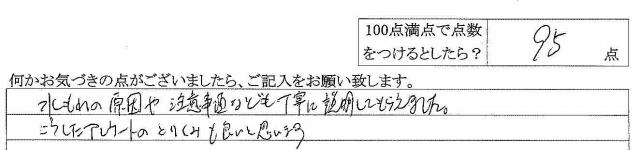 100点満点で点数
をつけるとしたら？ 95 点
何かお気づきの点がございましたら、ご記入をお願い致します。
水もれの原因や注意事項なども丁寧に説明してもらえました。
こうしたアンケートのとりくみも良いと思います